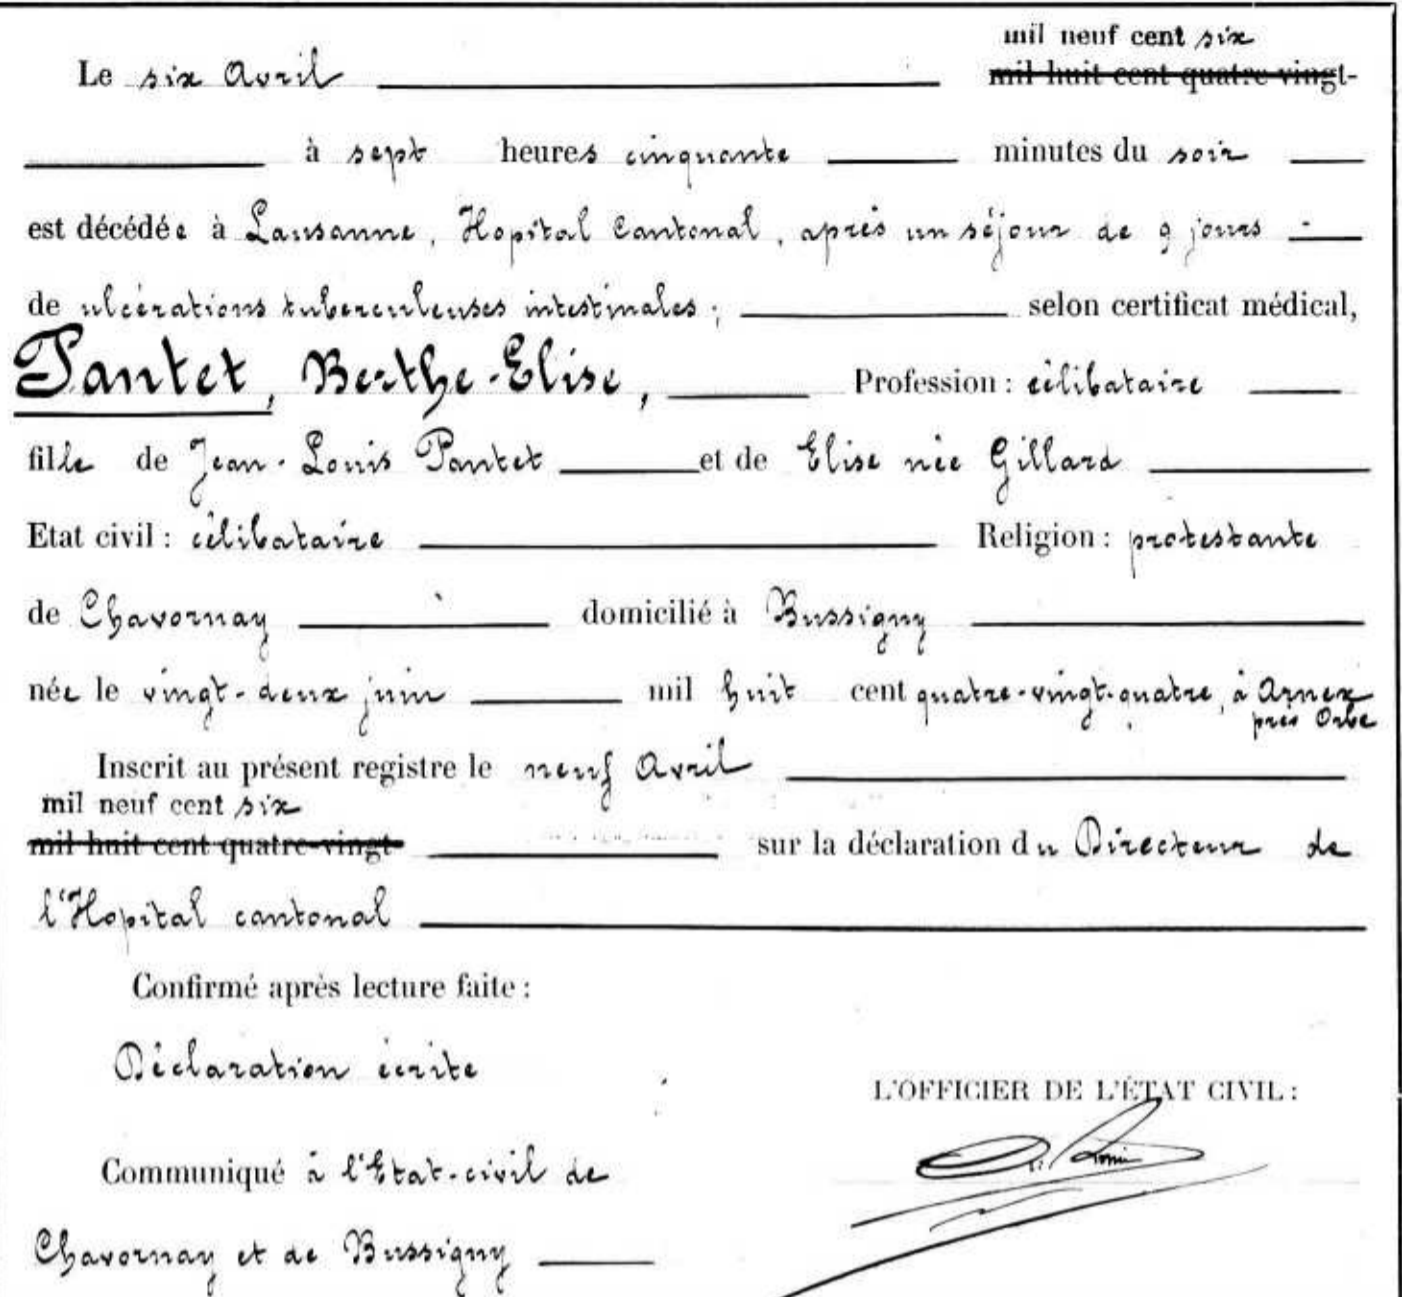 mil neuf cent six
Le six Avril mil huit cent quatre-vingt-
à sept heures cinquante minutes du soir
est décédée à Lausanne, Hopital Cantonal, après un séjour de 9 jours -
de ulcérations tuberculeuses intestinales ; selon certificat médical,
Pantet, Berthe-Elise, Profession : célibataire
fille de Jean-Louis Pantet et de Elise née Gillard
Etat civil : célibataire Religion : protestante
de Chavornay domicilié à Bussigny
née le vingt-deux juin mil huit cent quatre-vingt-quatre, à Arnex
près Orbe
Inscrit au présent registre le neuf Avril
mil neuf cent six
mil huit cent quatre-vingt- sur la déclaration du Directeur de
l'Hopital cantonal
Confirmé après lecture faite :
Déclaration écrite
L'OFFICIER DE L'ÉTAT CIVIL :
Communiqué à l'Etat-civil de
Chavornay et de Bussigny